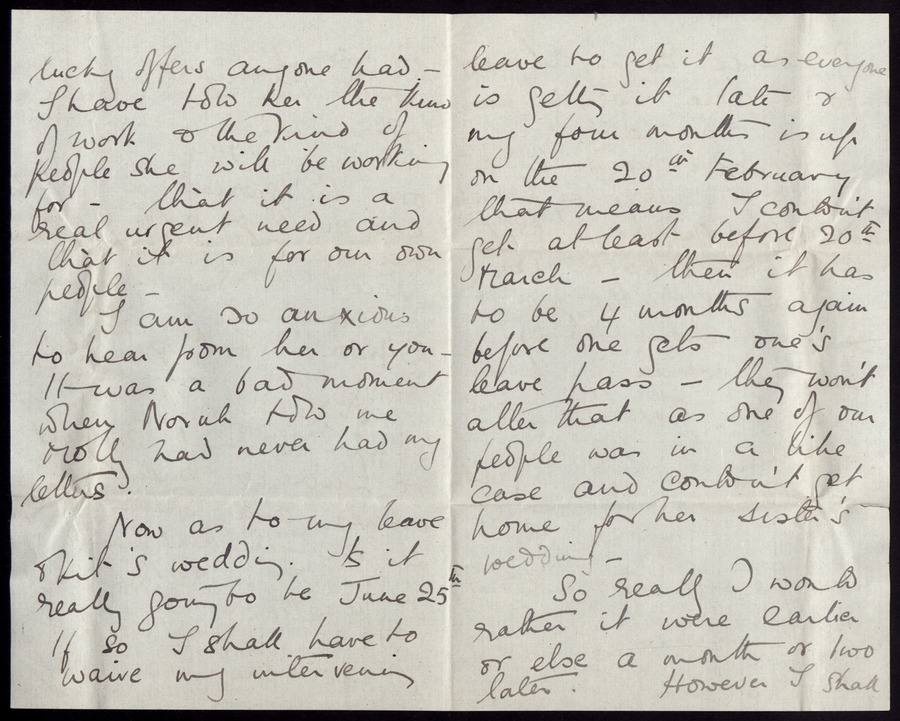 lucky offers anyone had -
I have told her the kind
of work & the kind of
people she will be working
for - that it is a
real urgent need and
that it is for our own
people -
I am so anxious
to hear from her or you -
It was a bad moment
when Norah told me
Molly had never had my
letters.
Now as to my leave
& Kit's wedding. Is it
really going to be June 25th
If so I shall have to
waive my intervening
leave to get it as everyone
is getting it late &
my four months is up
on the 20th February
that means I couldn't
get at least before 20th
March - then it has
to be 4 months again
before one gets one's
leave pass - they won't
alter that as one of our
people was in a like
case and couldn't get
home for her sister's
wedding -
So really I would
rather it were earlier
or else a month or two
later. However I shall